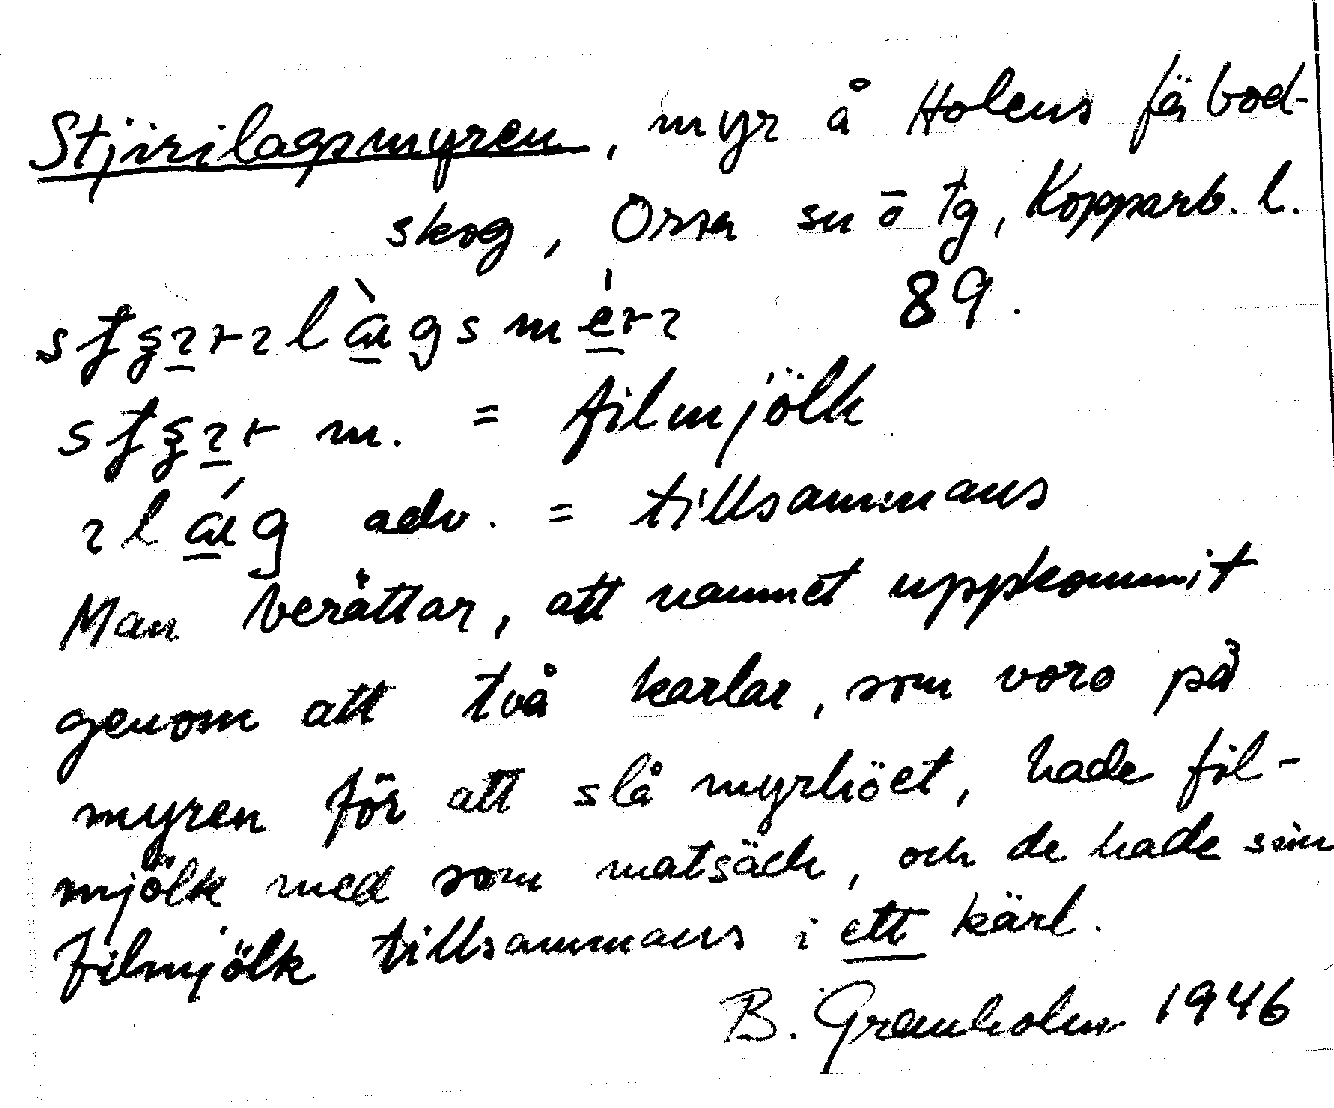 Stjirilagsmyren, myr å Holens fäbod-
skog, Orsa sn ō tg, Kopparb. l.
89.
m. = filmjölk
adv. = tillsammans
Man berättar, att namnet uppkommit
genom att två karlar, som voro på
myren för att slå myrhöet, hade fil-
mjölk med som matsäck, och de hade sin
filmjölk tillsammans i ett kärl.
B. Granholm 1946